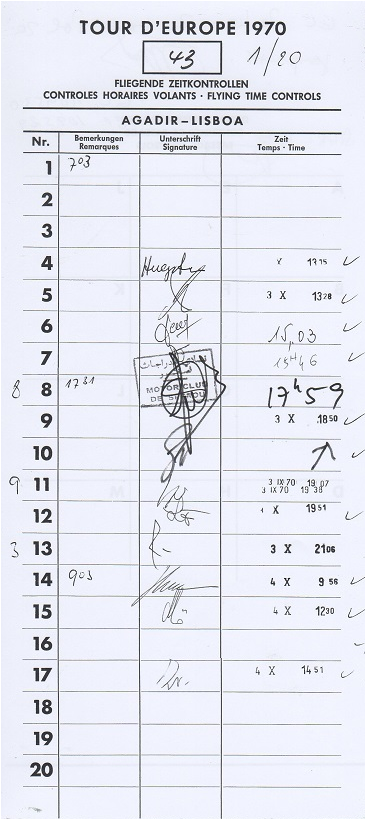 TOUR D'EUROPE 1970
43 1/20
FLIEGENDE ZEITKONTROLLEN
CONTROLES HORAIRES VOLANTS · FLYING TIME CONTROLS
AGADIR–LISBOA
Nr. Bemerkungen Remarques Unterschrift Signature Zeit Temps · Time
1 703
2
3
4 X 1215
5 3 X 1328
6 15,03
7 15H46
8 8 1731 MOTOR CLUB 17h59
9 3 X 1850
10
9 11 3 IX 70 19 07
3 IX 70 19 38
12 X 1951
3 13 3 X 2106
14 903 4 X 9 56
15 4 X 1230
16
17 4 X 1451
18
19
20